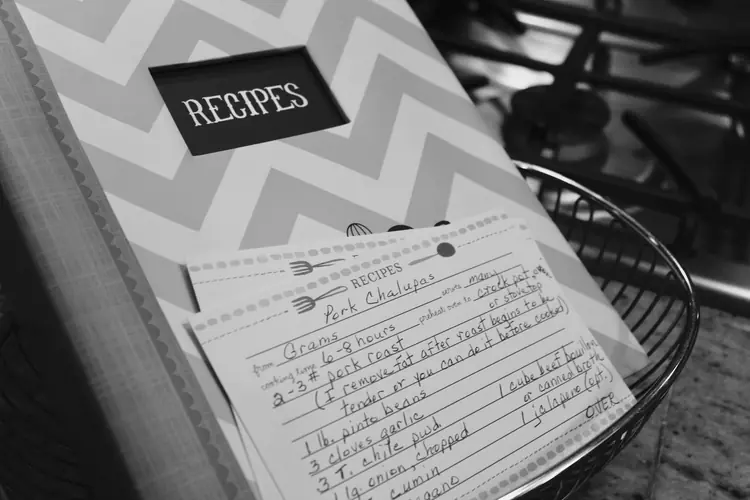 RECIPES
RECIPES
Pork Chalupas
from Grams serves many
cooking time 6-8 hours preheat oven to crock pot
or stovetop
2-3# pork roast
(I remove fat after roast begins to be
tender or you can do it before cooked)
1 lb. pinto beans
3 cloves garlic 1 cube beef bouillon
3 T. chile pwd or canned broth
1 lg onion, chopped 1 jalapeno (opt.)
cumin
OVER